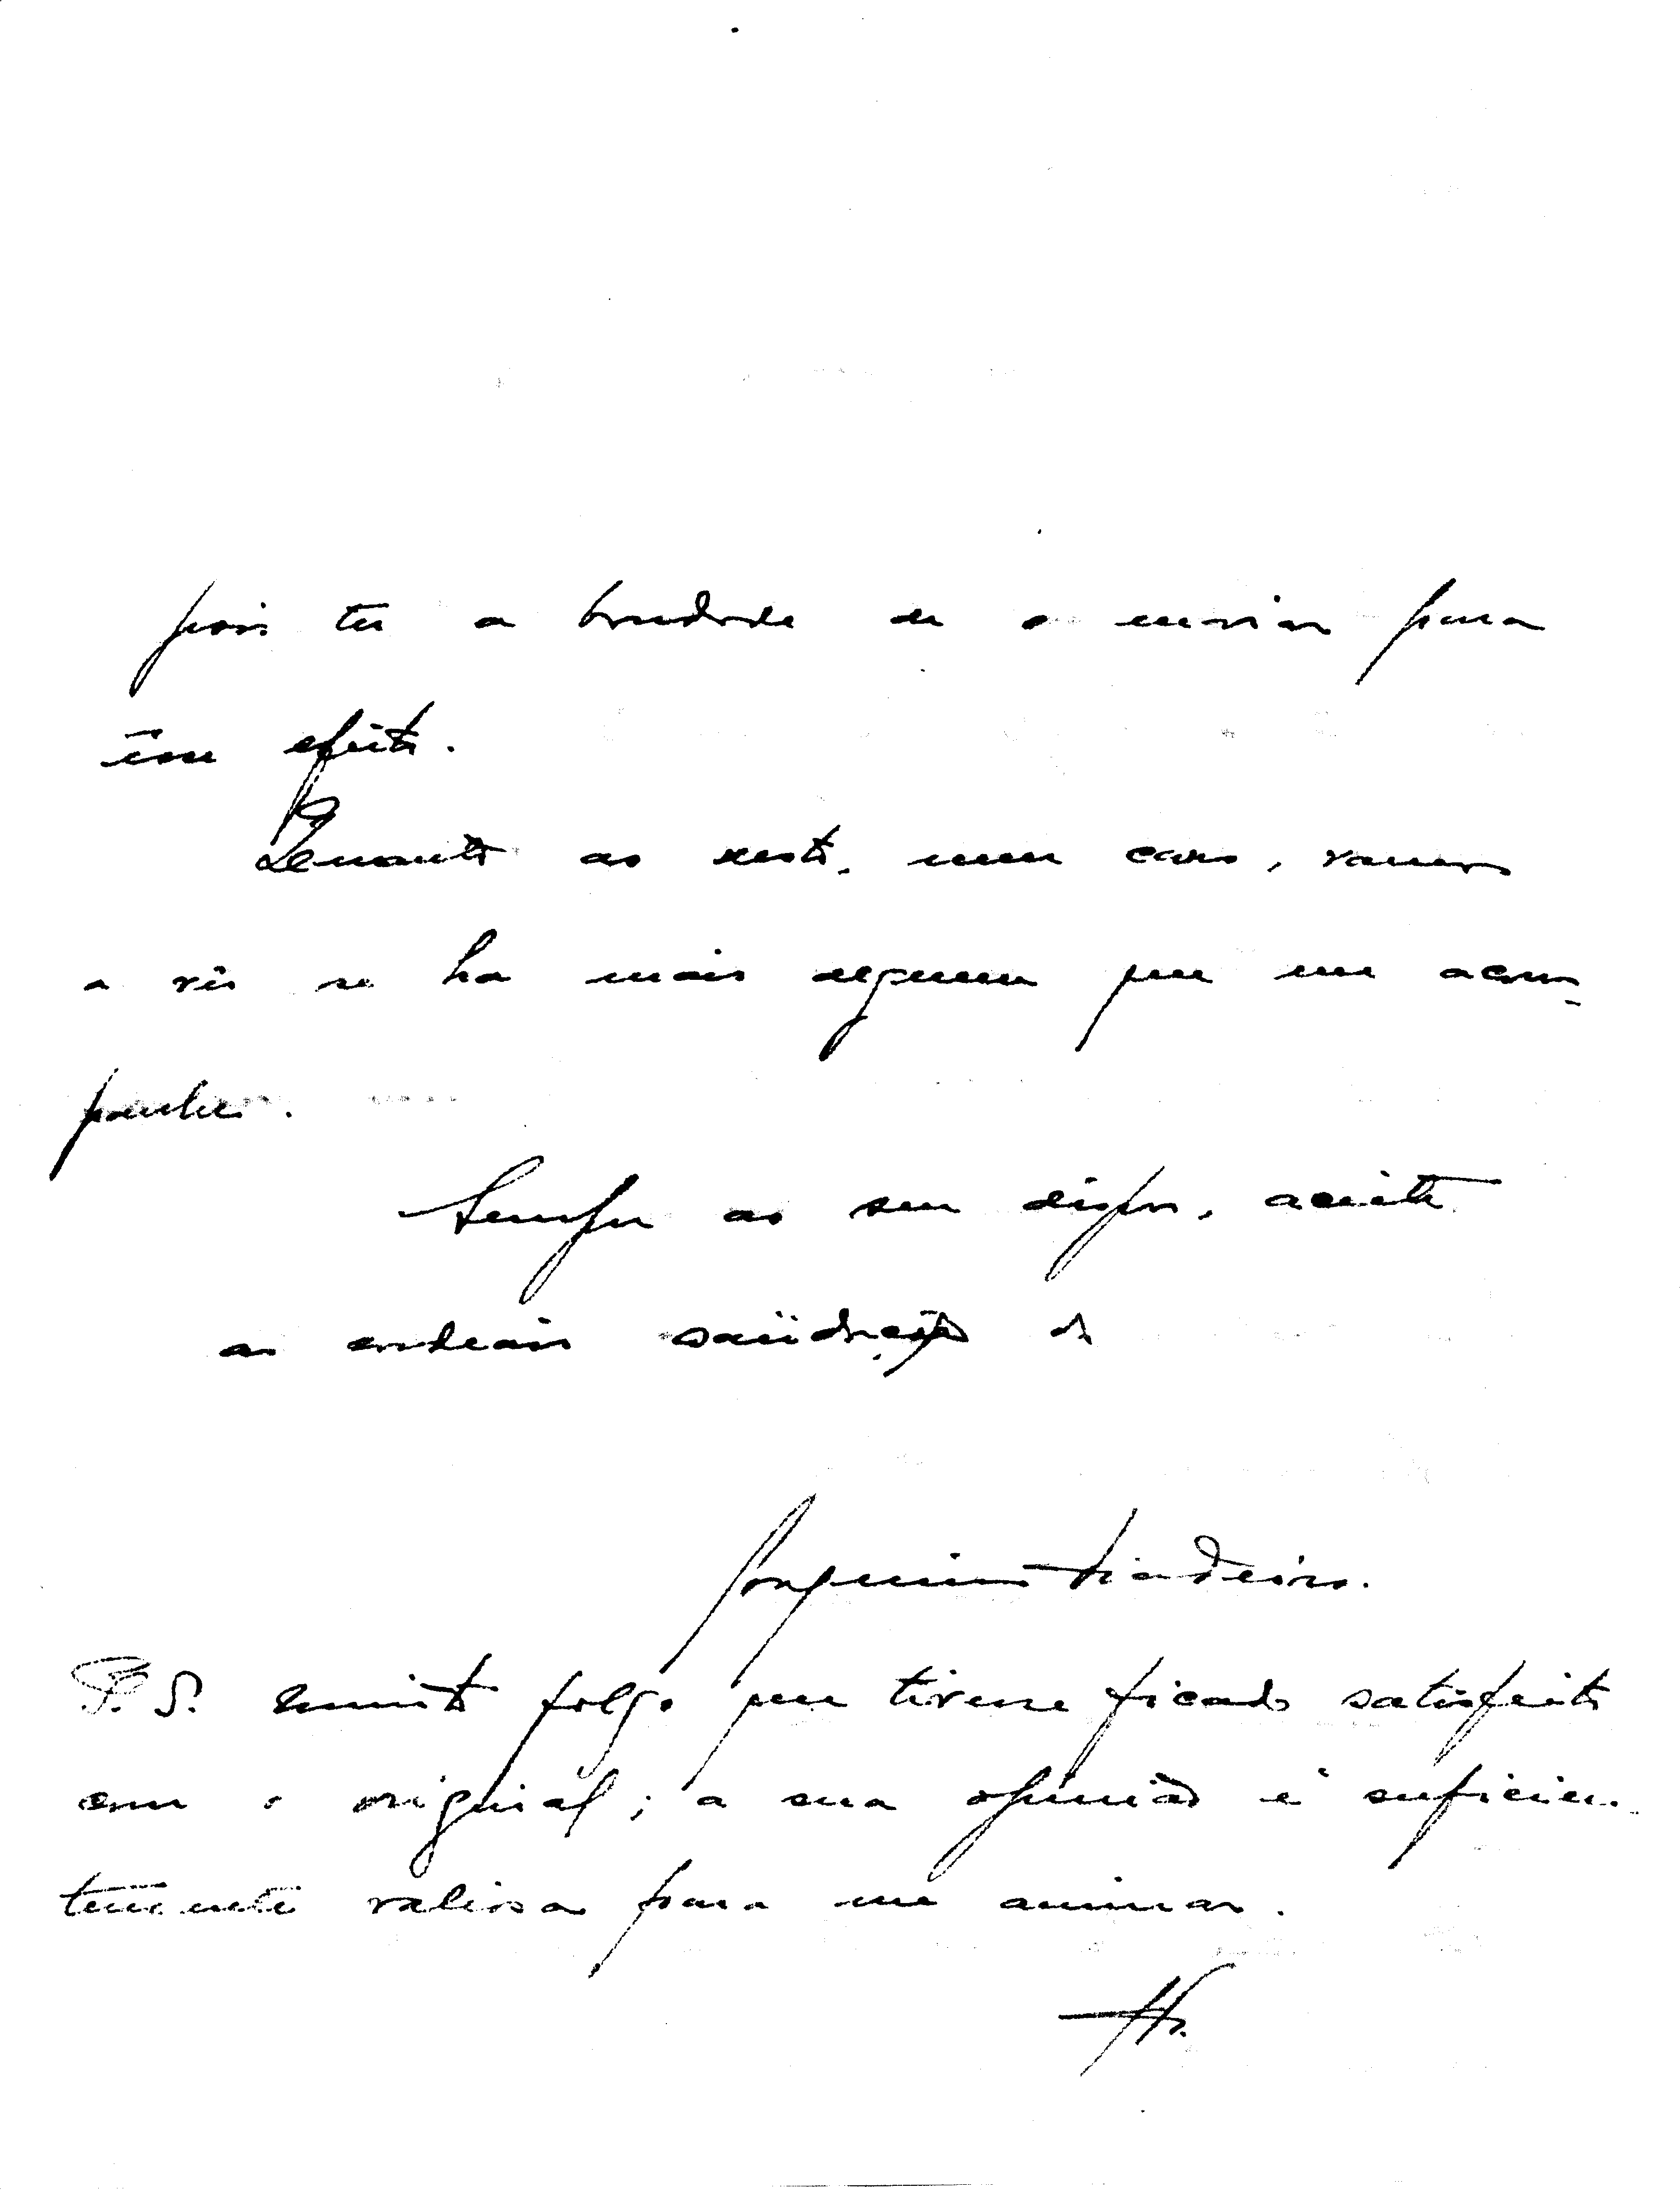 pois ter a bondade de o enviar para
êsse efeito.
Quanto ao resto, meu caro, vamos
a vêr se ha mais alguem que me acom-
panhe.
Sempre ao seu dispôr, aceite
as cordeais saüdações de
Joaquim
P.S. Muito folgo que tivesse ficado satisfeito
com o original; a sua opinião é suficien-
temente valiosa para me animar.